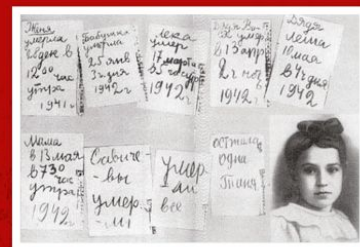 Женя
умерла
28 дек в
12.00 час
утра
1941 г
Бабушка
умерла
25 янв
3 ч. дня
1942 г
Лека
умер
17 марта
в 5 час утр
1942 г
Дядя Вася
умер
в 13 апр
2 ч ночь
1942 г
Дядя
Леша
10 мая
в 4 ч дня
1942
Мама
в 13 мая
в 7.30
час
утра
1942 г
Савиче
-вы
умер-
ли
умер
ли
все
осталась
одна
Таня